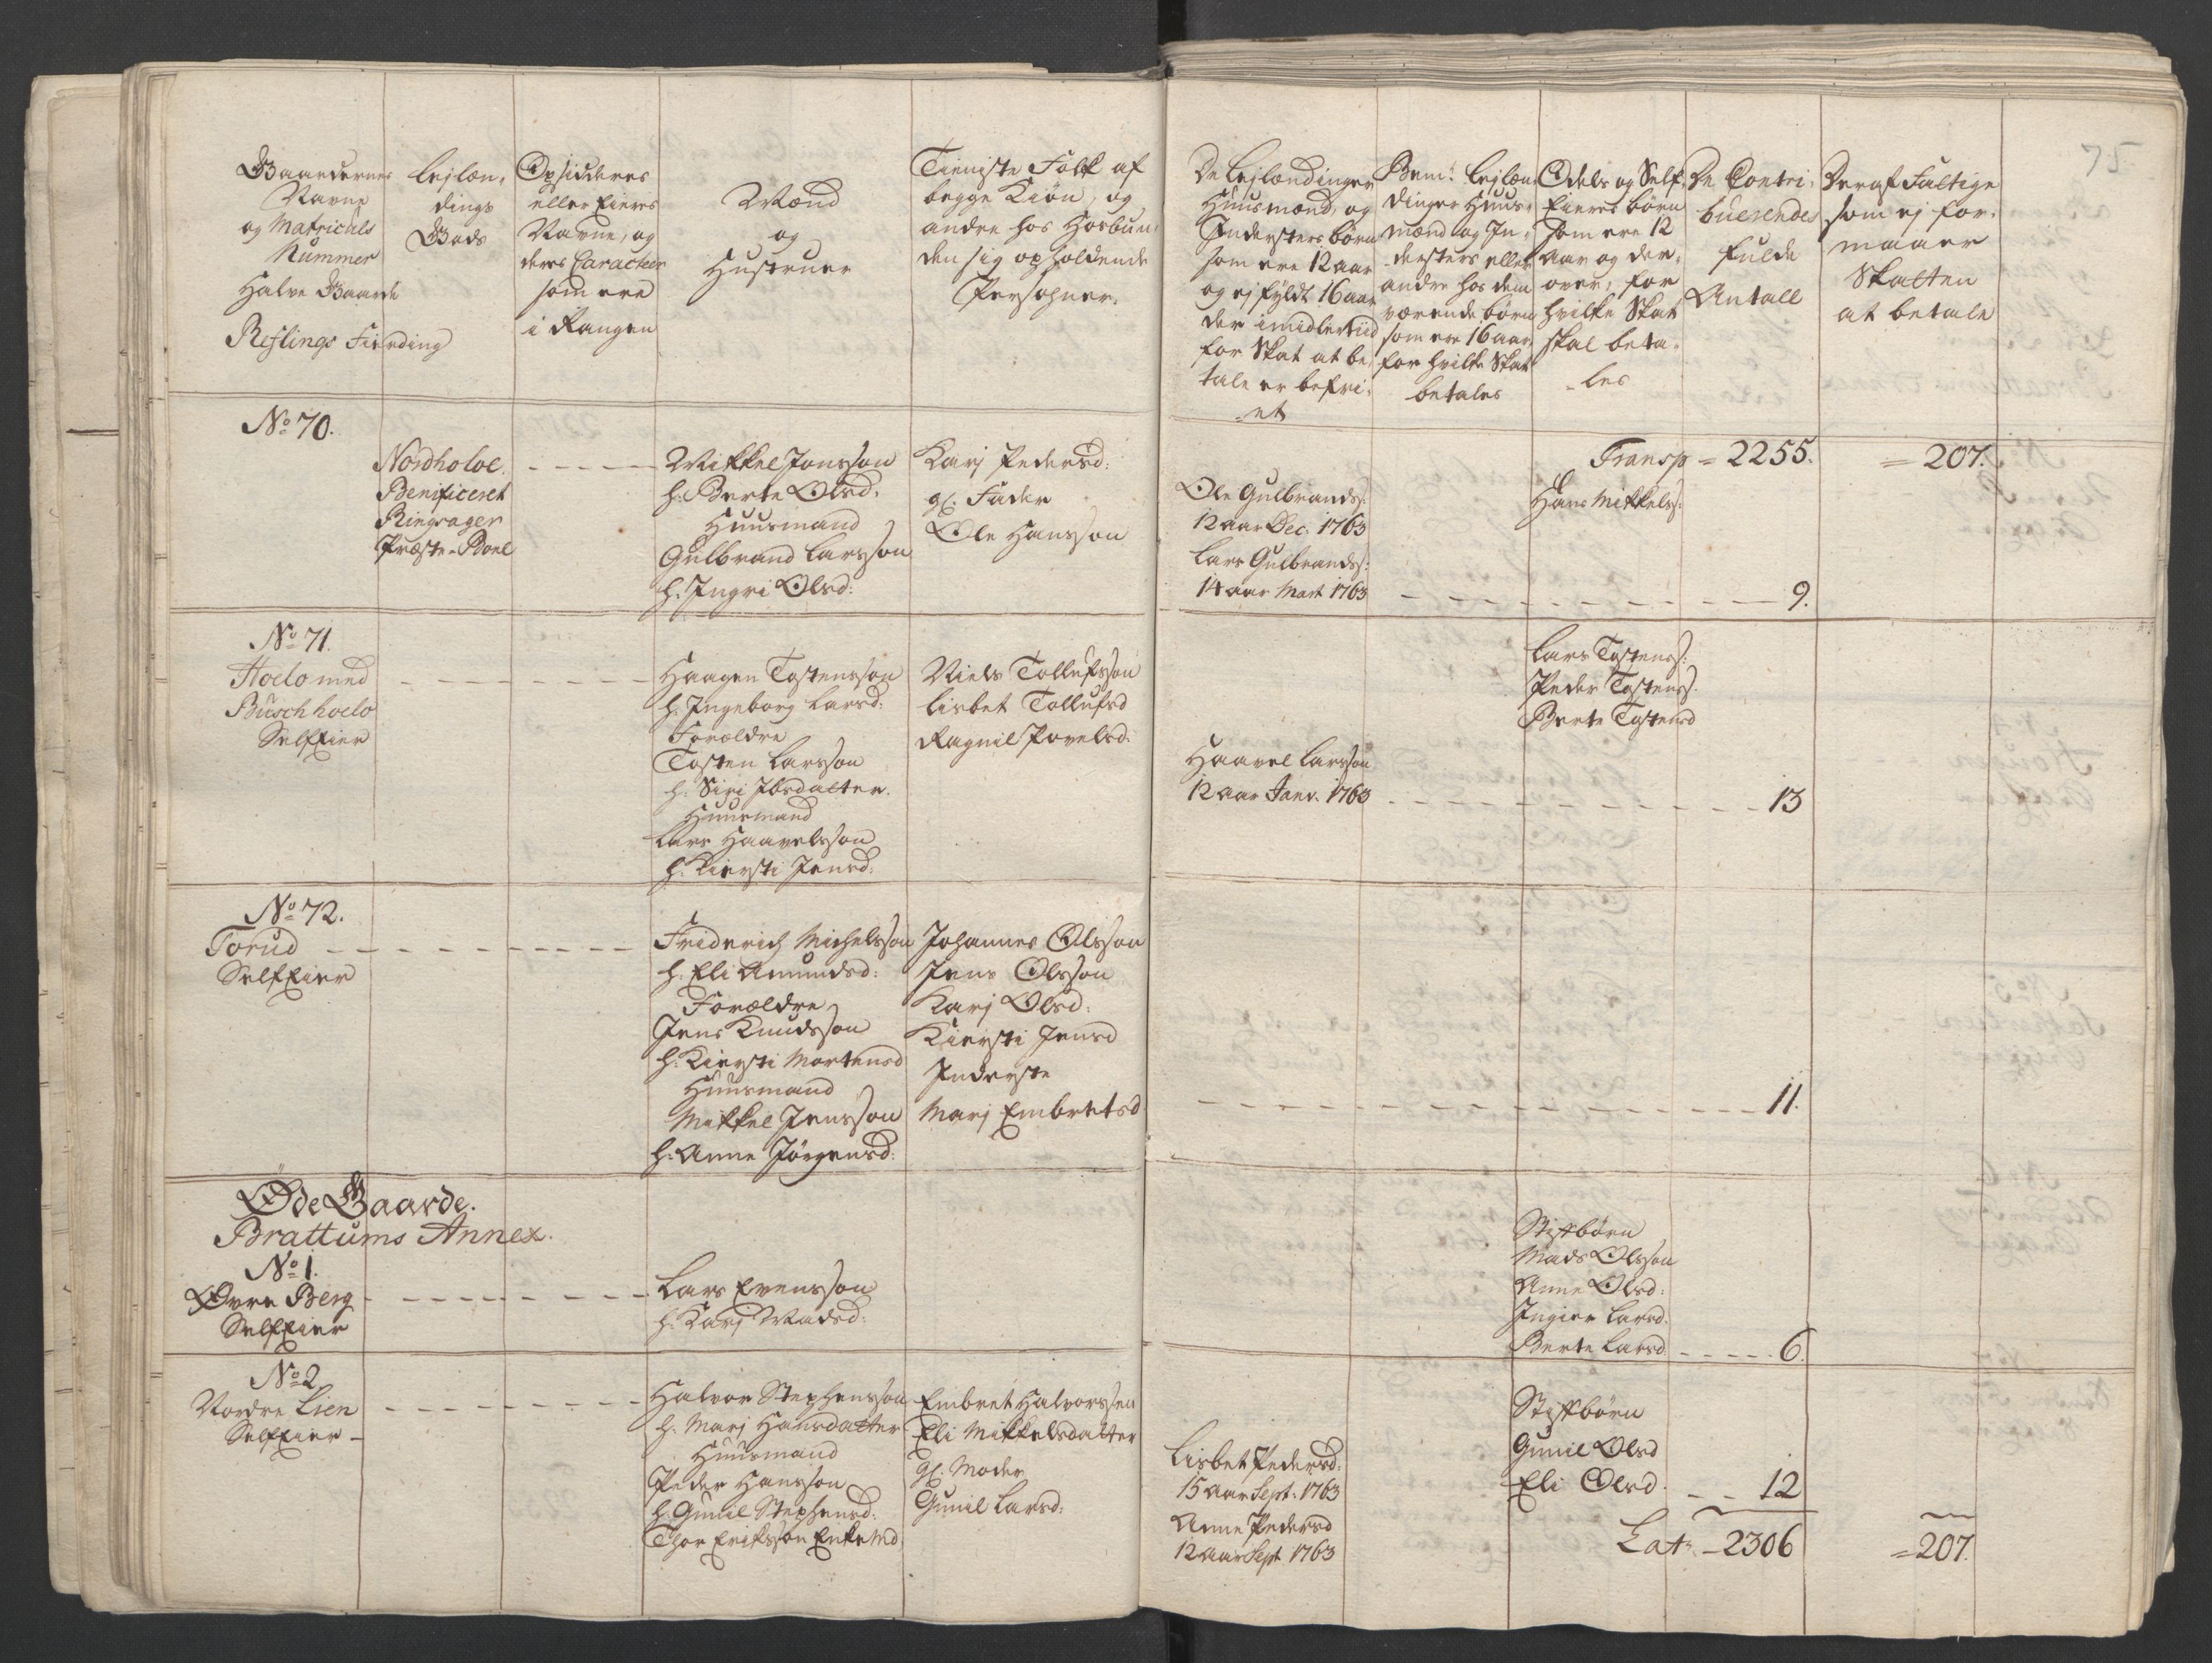 75
Gaardernes
Navne
og Matriculs
Nummer
Halve Gaarde
Reslings Fierding
Lejlæn,,
dings
Gods
Opsidderes
eller Eieres
Navne, og
deres Caracteer
som ere
i Rangen
Mænd
og
Hustruer
Tieniste Folk af
begge Kiøn, og
andre hos Hosbun,,
den sig opholdende
Persohner.
De Lejlændinger
Huusmænd, og
Indersters børn
som ere 12 aar
og ej fyldt 16 aar
der imidlertiid
for Skat at be,,
tale er befri,,
et
Bem: Lejlæn
dinger Huus,,
mænd og In,,
dersters eller
andre hos dem
værende børn
som ere 16 aar
for hvilke Skat
betales
Odels og Self
Eieres børn
som ere 12
aar og der,,
over, for
hvilke Skat
skal beta,,
les
De Contri,,
buerendes
fulde
Antall
Deraf Fattige
som ej for,,
maaer
Skatten
at betale
No 70.
Nordholoe.
Benificeret
Ringsager
Præste-Boel
Mikkel Jonsson
h. Berte Olsd.
Huusmand
Gulbrand Larsson
h. Ingri Olsd:
Karj Pedersd:
gl. Fader
Ole Hansson
Ole Gulbrands:
12 aar Dec. 1763
Lars Gulbrands:
14 aar Mart 1763
Hans Mikkels:
Transp = 2255.
= 207.
9.
No 71.
Hoelo med
Buschhoelo
SelfEier
Haagen Tostensson
h. Ingeborg Larsd:
Forældre
Tosten Larsson
h. Siri Ibsdatter.
Huusmand
Lars Haavelsson
h. Kiersti Jensd:
Niels Tollufsson
Lisbet Tollufsd
Ragnil Povelsd:
Haavel Larsson
12 aar Janv. 1763
Lars Tostens:
Peder Tostens.
Berte Tostensd
13
No 72.
Torud
SelfEier
Friderich Michelsson
h. Eli Amundsd:
Forældre
Jens Knudsson
h. Kiersti Mortensd
Huusmand
Mikkel Jensson
h. Anne Jørgensd:
Johannes Olsson
Jens Olsson
Karj Olsd:
Kiersti Jensd
Inderste
Marj Embretsd
11.
Øde Gaarde.
Brattums Annex.
No 1.
Øvre Berg
SelfEier
Lars Evensson
h. Karj Madsd:
Stifbørn
Mads Olsson
Anne Olsd:
Ingier Larsd.
Berte Larsd.
6.
No 2.
Nordre Lien
SelfEier
Halvor Stephensson
h. Marj Hansdatter
Huusmand
Peder Hansson
h. Gunil Stephensd:
Thor Eriksson Enkemd
Embret Halvorssen
Eli Mikkelsdatter
gl. Moder
Gunil Larsd:
Lisbet Pedersd:
15 aar Sept. 1763
Anne Pedersd
12 aar Sept 1763
Stifbørn
Gunil Olsd
Eli Olsd.
12
Lat: 2306
= 207.